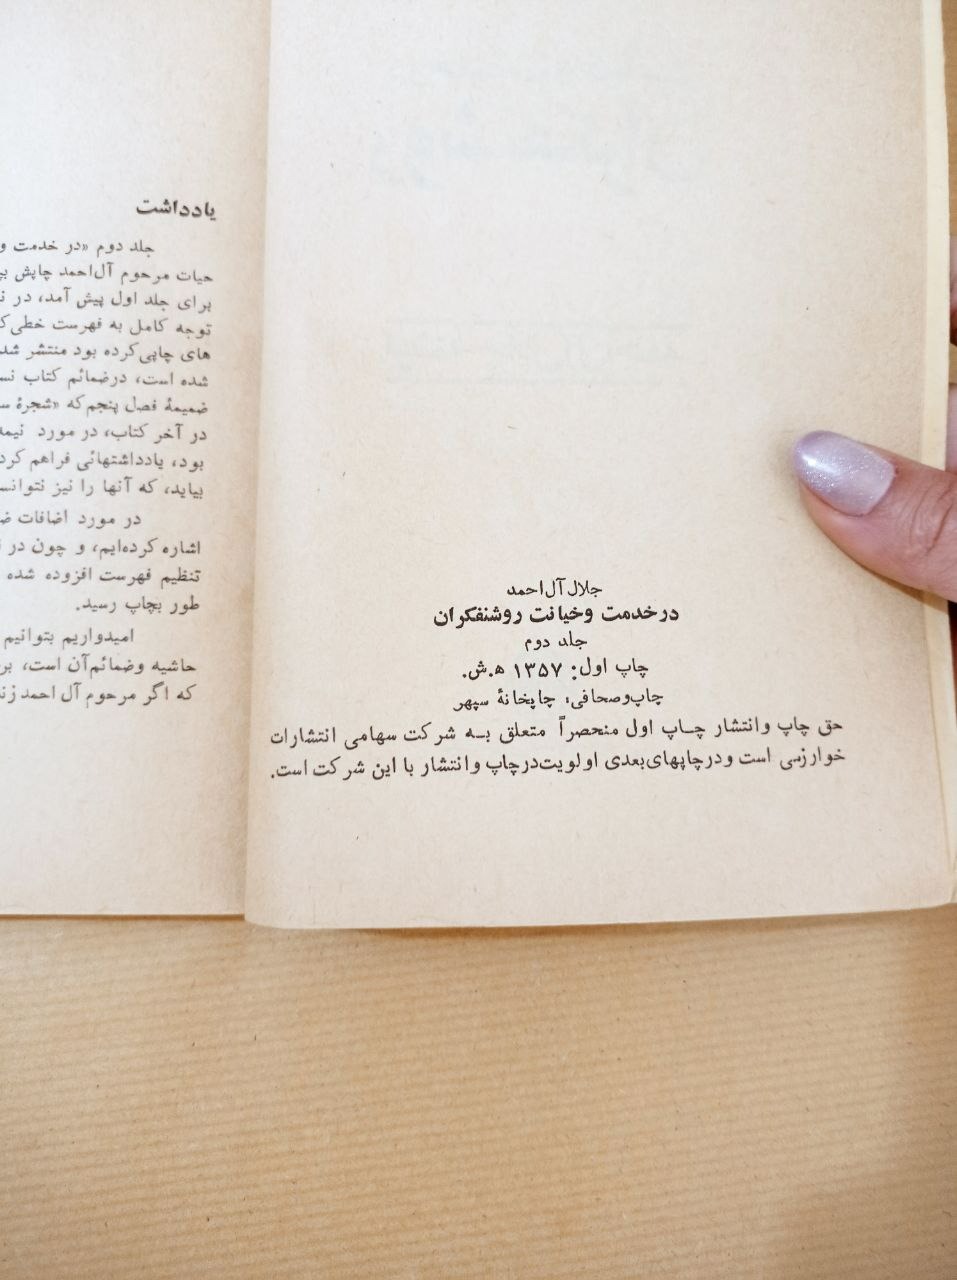 جلال آل‌احمد
درخدمت وخیانت روشنفکران
جلد دوم
چاپ اول: ۱۳۵۷ ه‍.ش.
چاپ‌وصحافی: چاپخانهٔ سپهر
حق چاپ وانتشار چـاپ اول منحصراً متعلق بـه شرکت سهامی انتشارات
خوارزمی است ودرچاپهای‌بعدی اولویت‌درچاپ وانتشار با این شرکت است.
یادداشت
جلد دوم «در خدمت و
حیات مرحوم آل‌احمد چاپش
برای جلد اول پیش آمد، در
توجه کامل به فهرست
های چاپی‌کرده بود منتشر
شده است، درضمائم کتاب
ضمیمهٔ فصل پنجم‌که «شجرهٔ
در آخر کتاب، در مورد
بود، یادداشتهائی فراهم
بیاید، که آنها را نیز
در مورد اضافات
اشاره کرده‌ایم، و چون در
تنظیم فهرست افزوده شده
طور بچاپ رسید.
امیدواریم بتوانیم
حاشیه وضمائم‌آن است،
که اگر مرحوم آل احمد